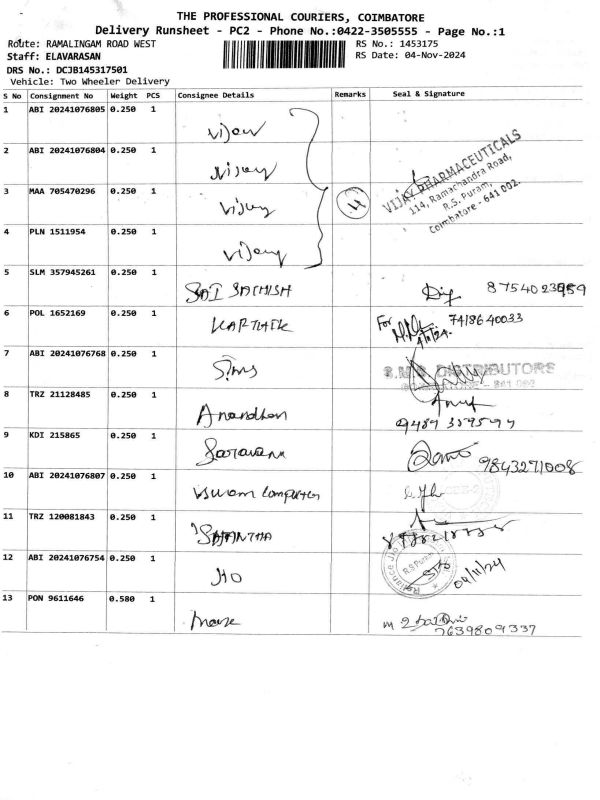 THE PROFESSIONAL COURIERS, COIMBATORE
Delivery Runsheet - PC2 - Phone No.:0422-3505555 - Page No.:1
Route: RAMALINGAM ROAD WEST
RS No.: 1453175
Staff: ELAVARASAN
RS Date: 04-Nov-2024
DRS No.: DCJB145317501
Vehicle: Two Wheeler Delivery
S No Consignment No Weight PCS Consignee Details Remarks Seal & Signature
1 ABI 20241076805 0.250 1
Vijay
2 ABI 20241076804 0.250 1
Vijay
3 MAA 705470296 0.250 1
Vijay
4
VIJAY PHARMACEUTICALS
114, Ramachandra Road,
R.S. Puram,
Coimbatore - 641 002.
4 PLN 1511954 0.250 1
Vijay
5 SLM 357945261 0.250 1
SAI SATHISH
6 POL 1652169 0.250 1
KARTHIK
For
7418640033
4/11/24
7 ABI 20241076768 0.250 1
DISTRIBUTORS
8 TRZ 21128485 0.250 1
Anandhan
9 KDI 215865 0.250 1
Saravana
9843271008
10 ABI 20241076807 0.250 1
computers
11 TRZ 120081843 0.250 1
12 ABI 20241076754 0.250 1
JIO
R.S Puram
04/11/24
13 PON 9611646 0.580 1
7639809337